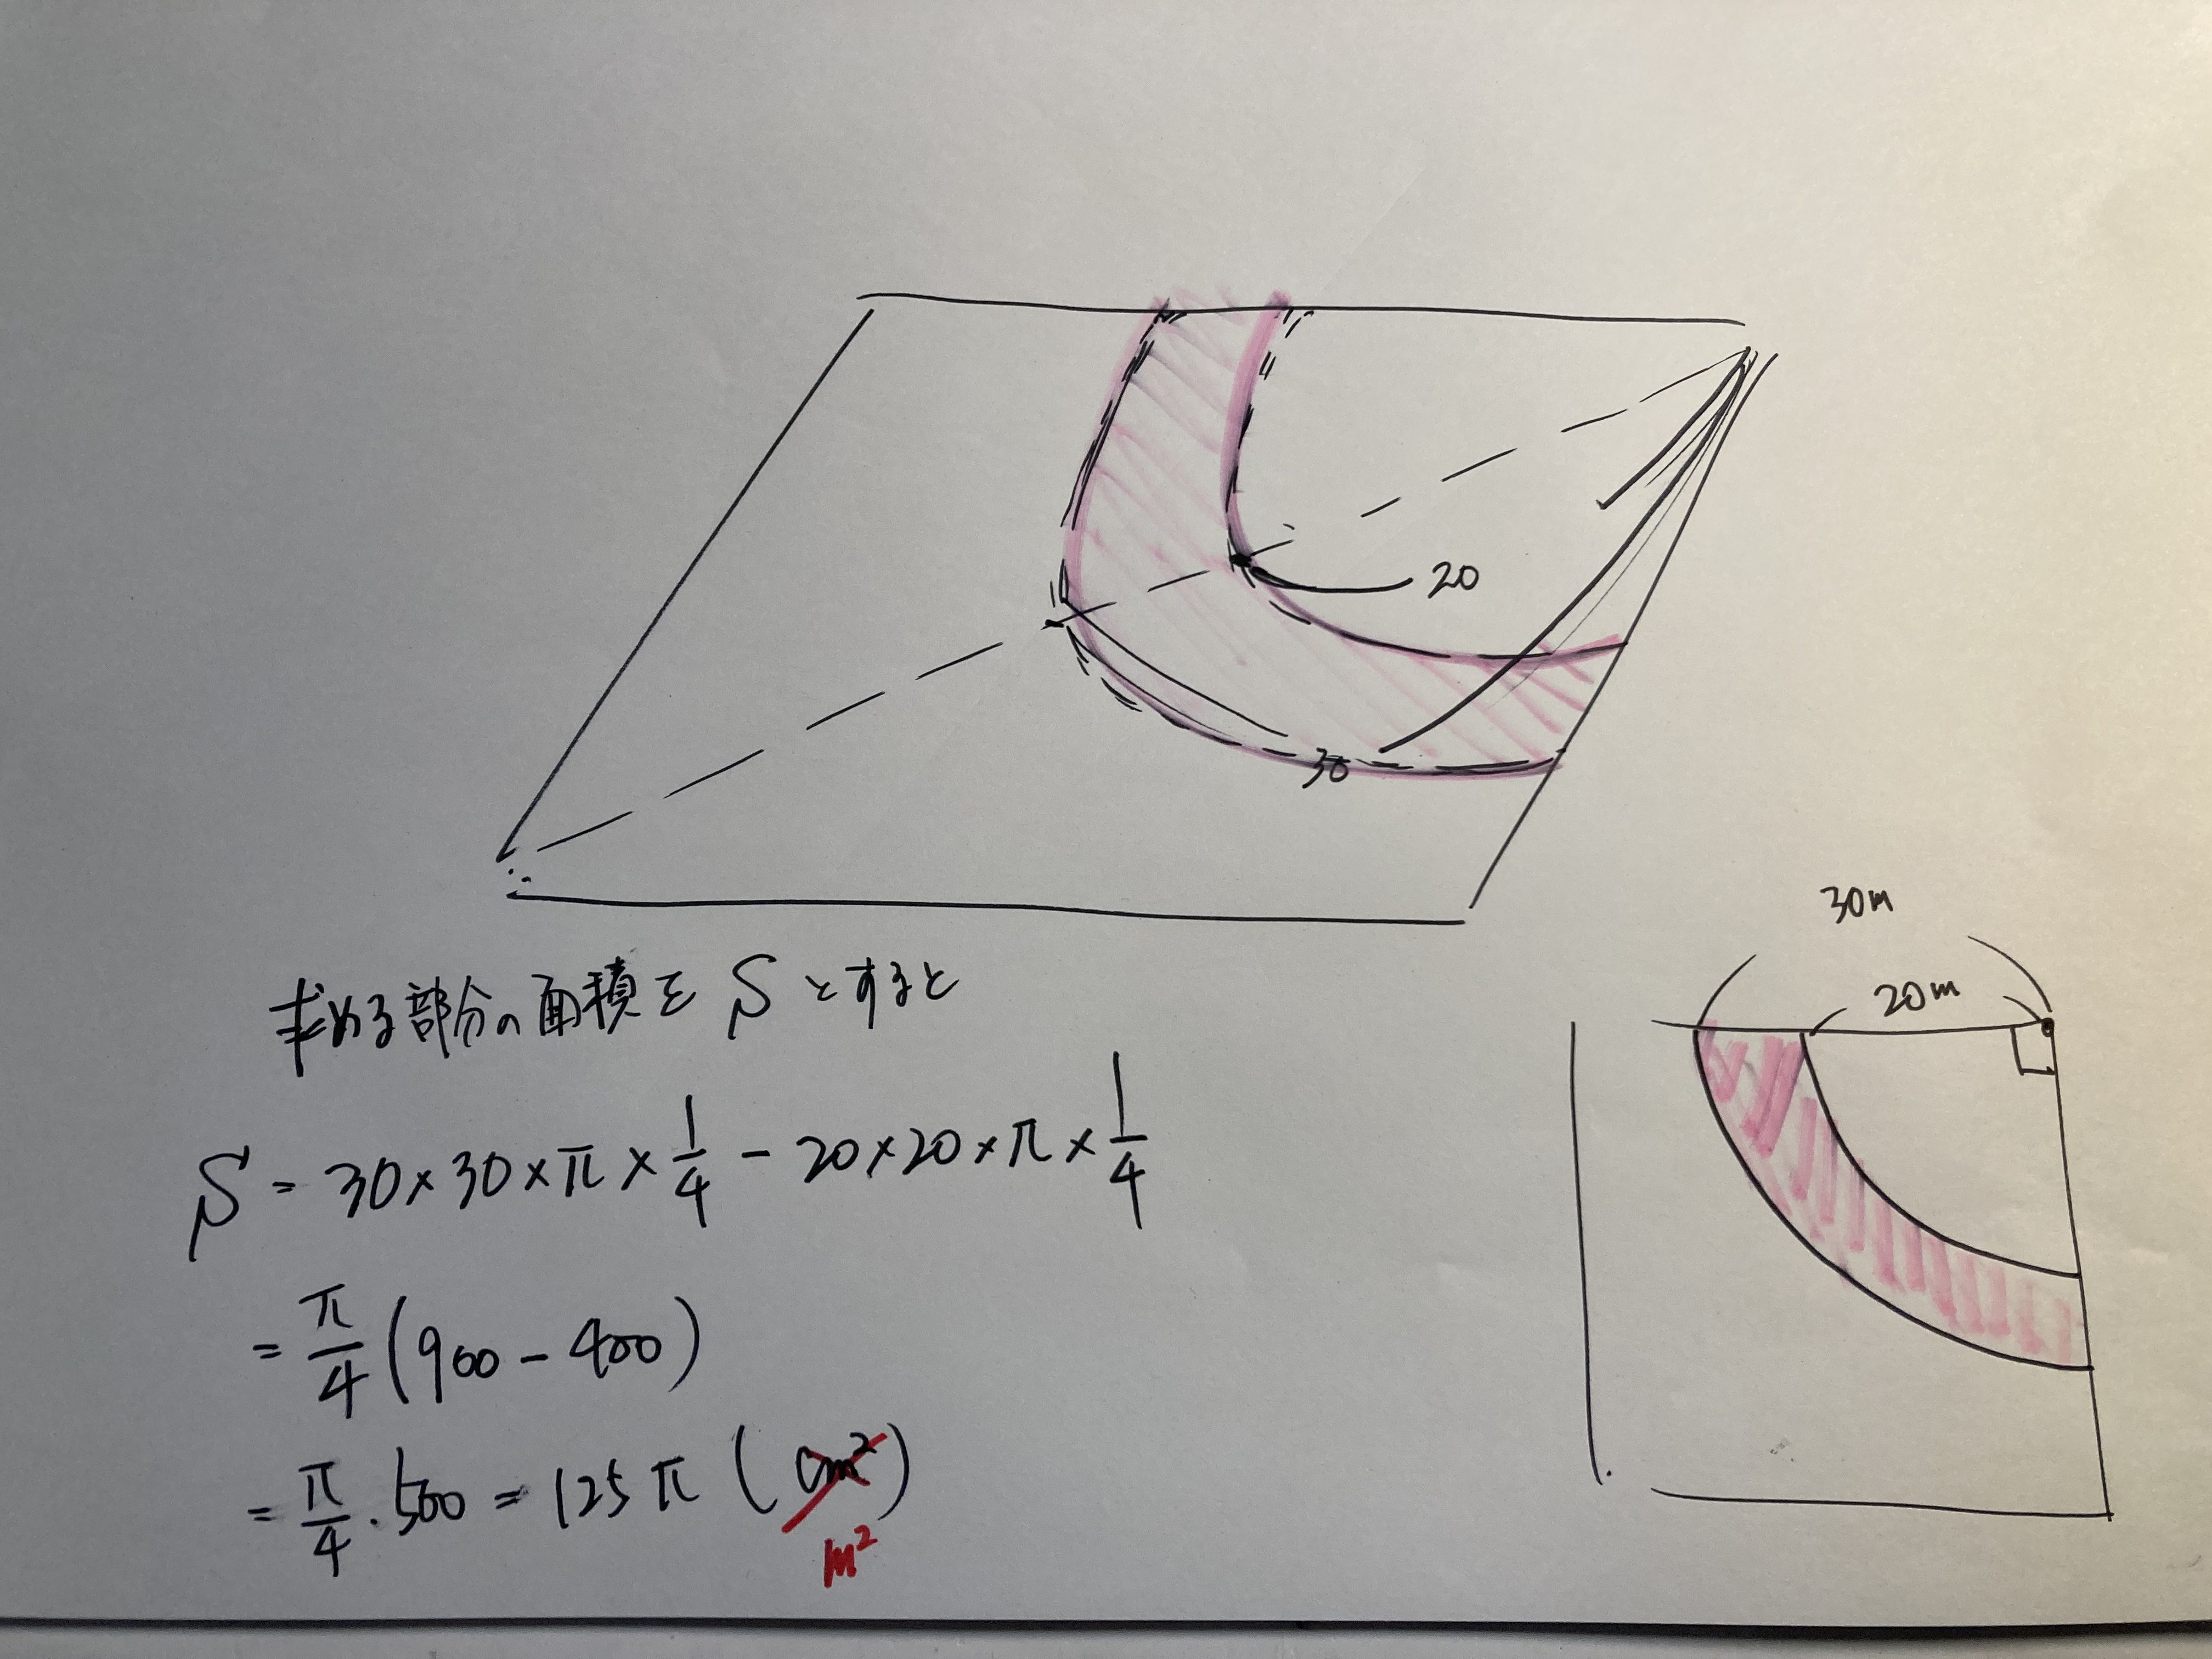 20
30
30m
20m
求める部分の面積を S とすると
S = 30×30×π×1/4 − 20×20×π×1/4
= π/4 (900 − 400)
= π/4 · 500 = 125π (cm²)
m²